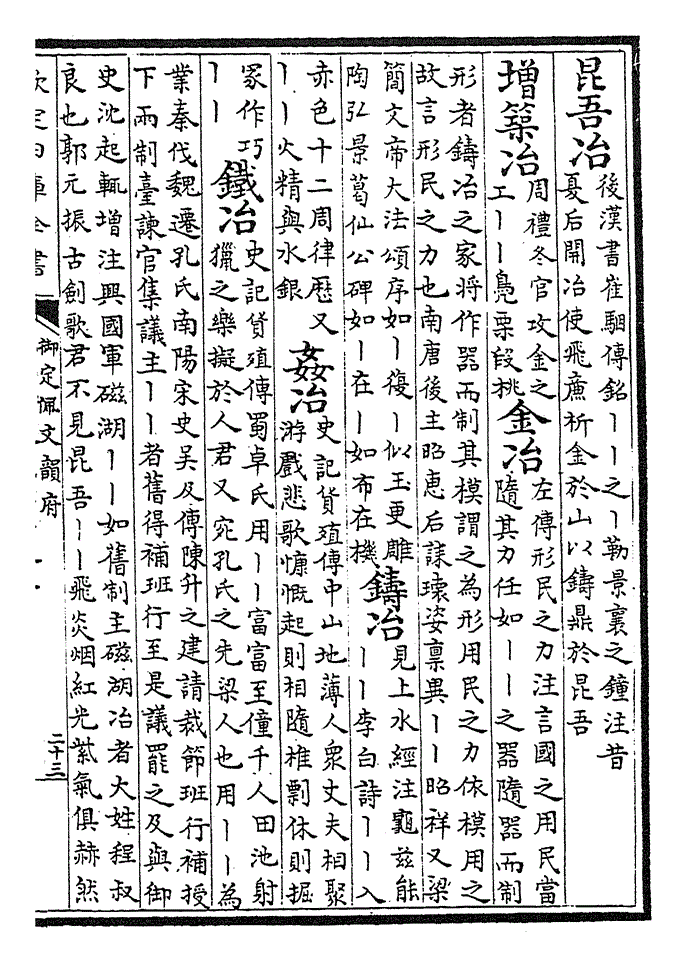 昆吾冶
後漢書崔駰傳銘丨丨之丨勒景襄之鐘注昔
夏后開冶使飛廉析金於山以鑄鼎於昆吾
增築冶
周禮冬官攻金之
工丨丨鳧栗段桃
金冶
左傳形民之力注言國之用民當
隨其力任如丨丨之器隨器而制
形者鑄冶之家將作器而制其模謂之為形用民之力依模用之
故言形民之力也南唐後主昭恵后誄瓌姿禀異丨丨昭祥又梁
簡文帝大法頌序如丨復丨似玉更雕
陶弘景葛仙公碑如丨在丨如布在機
鑄冶
見上水經注龜兹能
丨丨李白詩丨丨入
赤色十二周律歴又
丨丨火精與水銀
姦冶
史記貨殖傳中山地薄人衆丈夫相聚
游戲悲歌慷慨起則相隨椎剽休則掘
冢作巧
丨丨
鐵冶
史記貨殖傳蜀卓氏用丨丨富富至僮千人田池射
獵之樂擬於人君又宛孔氏之先梁人也用丨丨為
業秦伐魏遷孔氏南陽宋史吴及傳陳升之建請裁節班行補授
下兩制臺諫官集議主丨丨者舊得補班行至是議罷之及與御
史沈起輒增注興國軍磁湖丨丨如舊制主磁湖冶者大姓程叔
良也郭元振古劍歌君不見昆吾丨丨飛炎烟紅光紫氣俱赫然
欽定四庫全書
御定佩文韻府
二十三